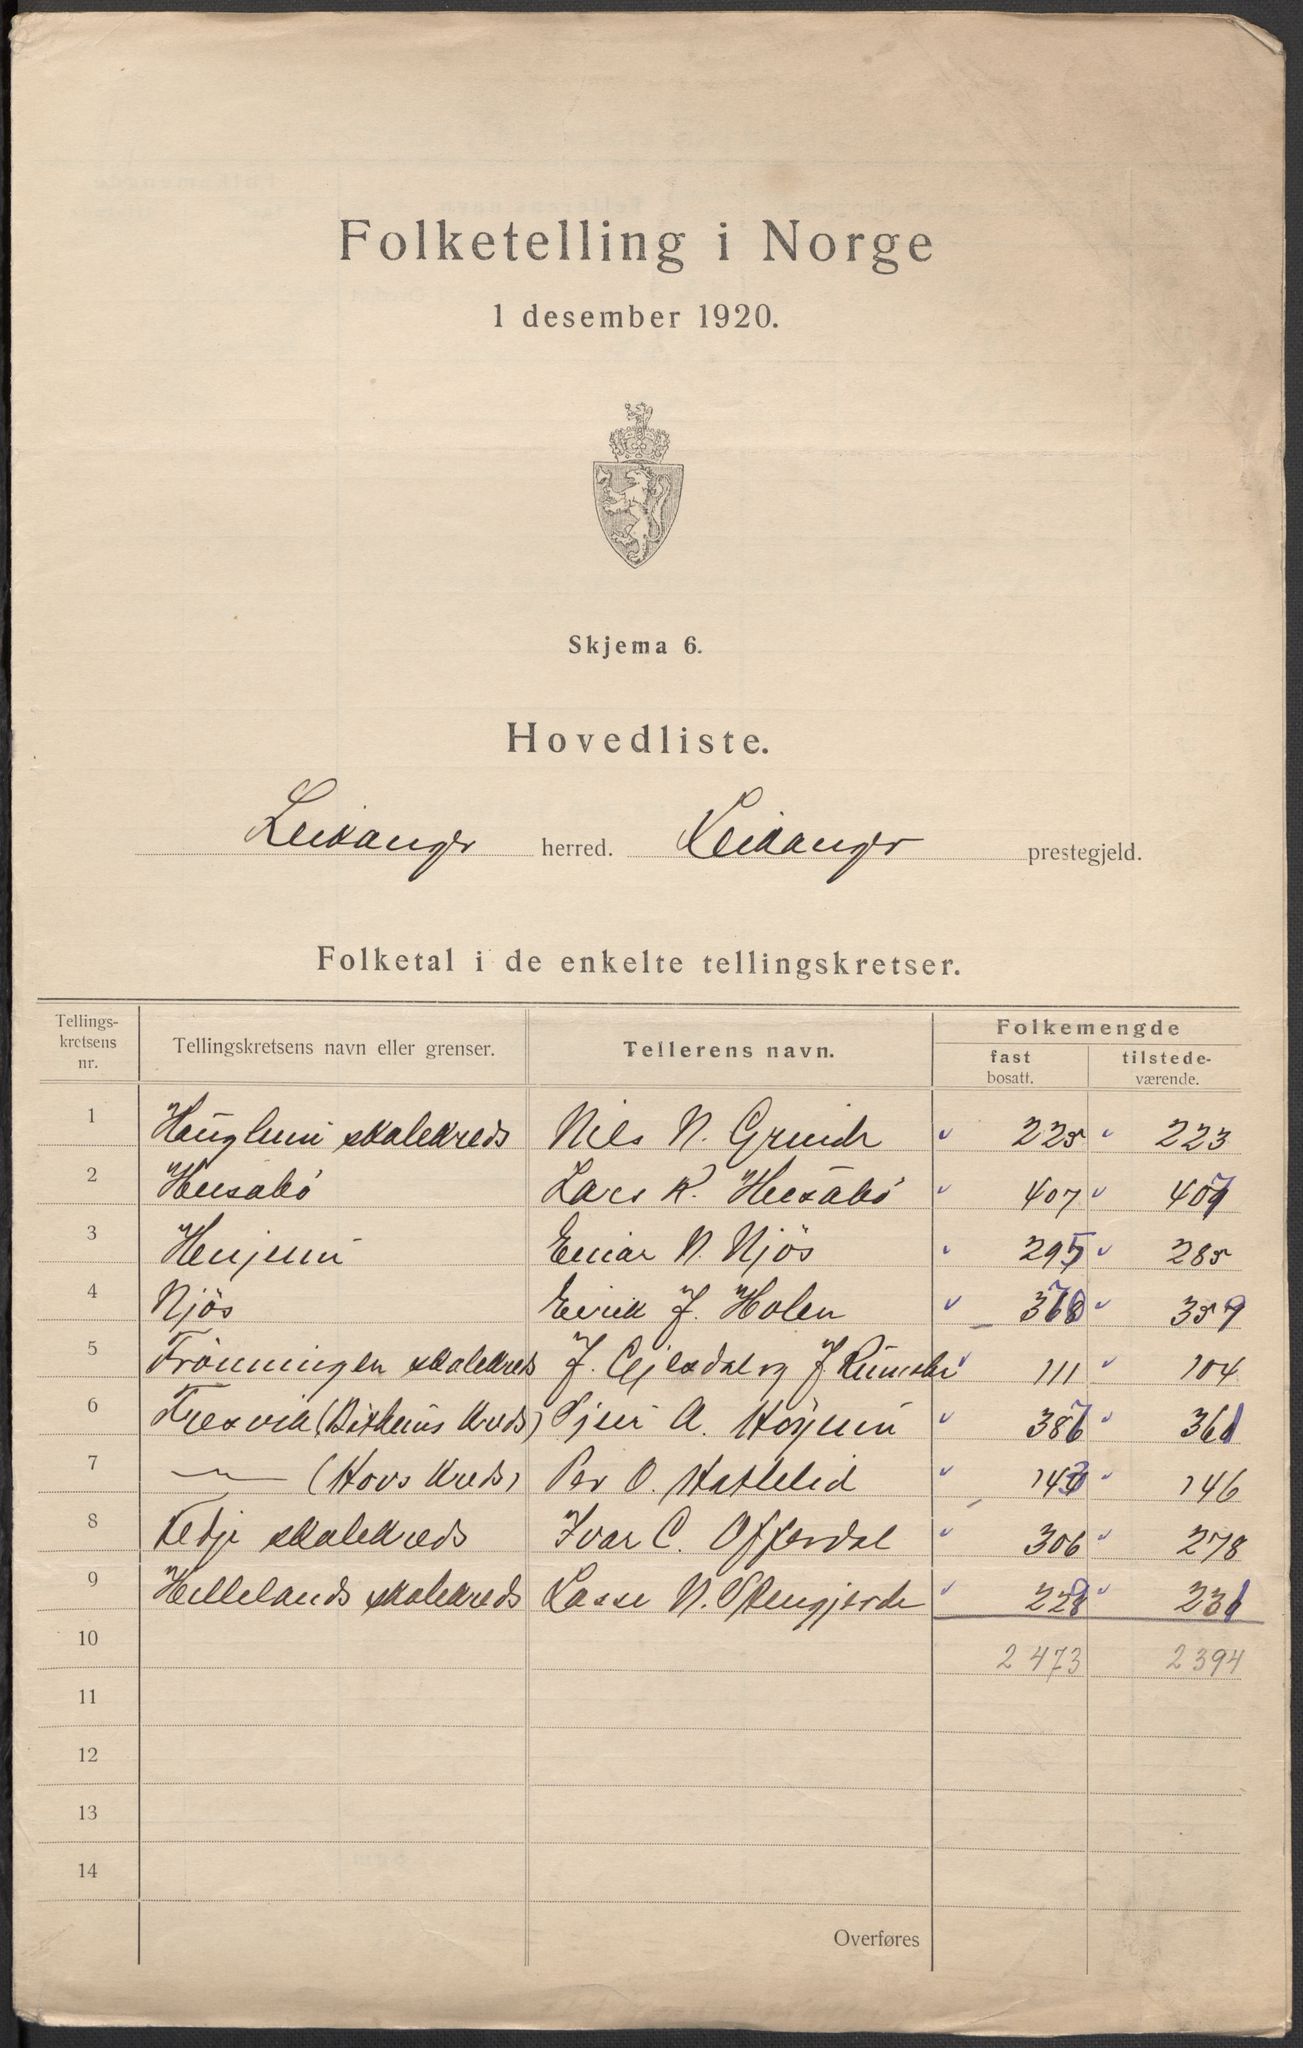 Folketelling i Norge
1 desember 1920.
Skjema 6.
Hovedliste.
Leikanger herred. Leikanger prestegjeld.
Folketal i de enkelte tellingskretser.
Tellings-
kretsens
nr.
Tellingskretsens navn eller grenser.
Tellerens navn.
Folkemengde
fast
bosatt.
tilstede-
værende.
1 Hauglum skolekreds Nils N. Grinde 225 223
2 Husabö Lars K. Husabö 407
3 Henjum Einar N. Njös 295 285
4 Njös Eirik J. Holen 359
5 Frönningen skolekreds J. og J. 111 104
6 Fresvik ( kreds) A. Höyum 361
7 — (Hovs kreds) Per O. Hatlelid 146
8 Fedje skolekreds Ivar C. Offerdal 306 278
9 Hellelands skolekreds Lasse N. Stengjerde 231
10 2473 2394
11
12
13
14
Overføres